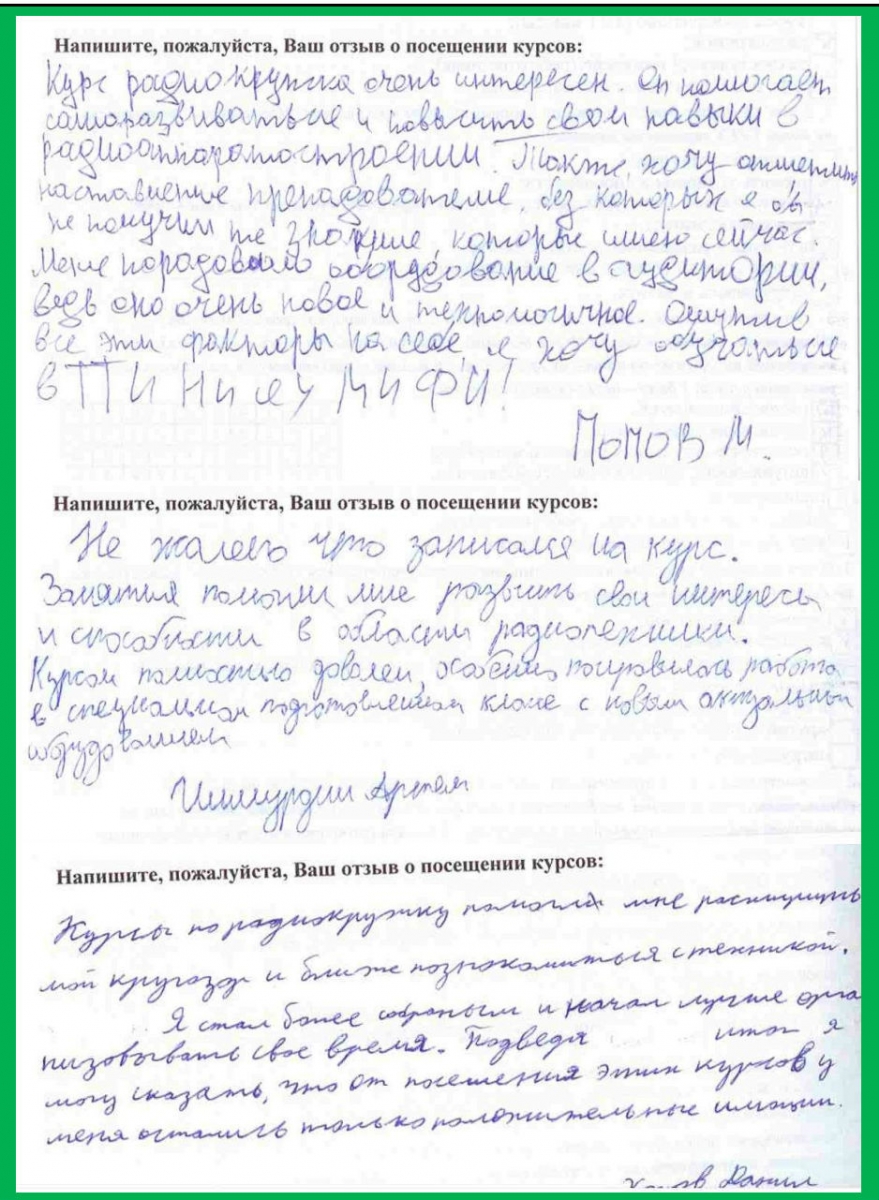 Напишите, пожалуйста, Ваш отзыв о посещении курсов:
Курс радиокружка очень интересен. Он помогает
саморазвиваться и повысить свои навыки в
радиоаппаратостроении. Также, хочу отметить
наставление преподователей, без которых я бы
не получил те знание, которые имею сейчас.
Меня порадовало оборудование в аудитории,
ведь оно очень новое и технологичное. Ощутив
все эти факторы на себе, я хочу обучаться
в ТИ НИЯУ МИФИ!
Попов М.
Напишите, пожалуйста, Ваш отзыв о посещении курсов:
Не жалею что записался на курс.
Занятия помогли мне развить свои интересы
и способности в области радиотехники.
Курсом полностью доволен, особенно понравилась работа
в специально подготовленном классе с новым актуальным
оборудованием
Артем
Напишите, пожалуйста, Ваш отзыв о посещении курсов:
Курсы по радиокружку помогли мне расширить
мой кругозор и ближе познакомиться с техникой.
Я стал более собраным и начал лучше орга
низовывать свое время. Подведя итог я
могу сказать, что от посещения этих курсов у
меня остались только положительные имоции.
Данил